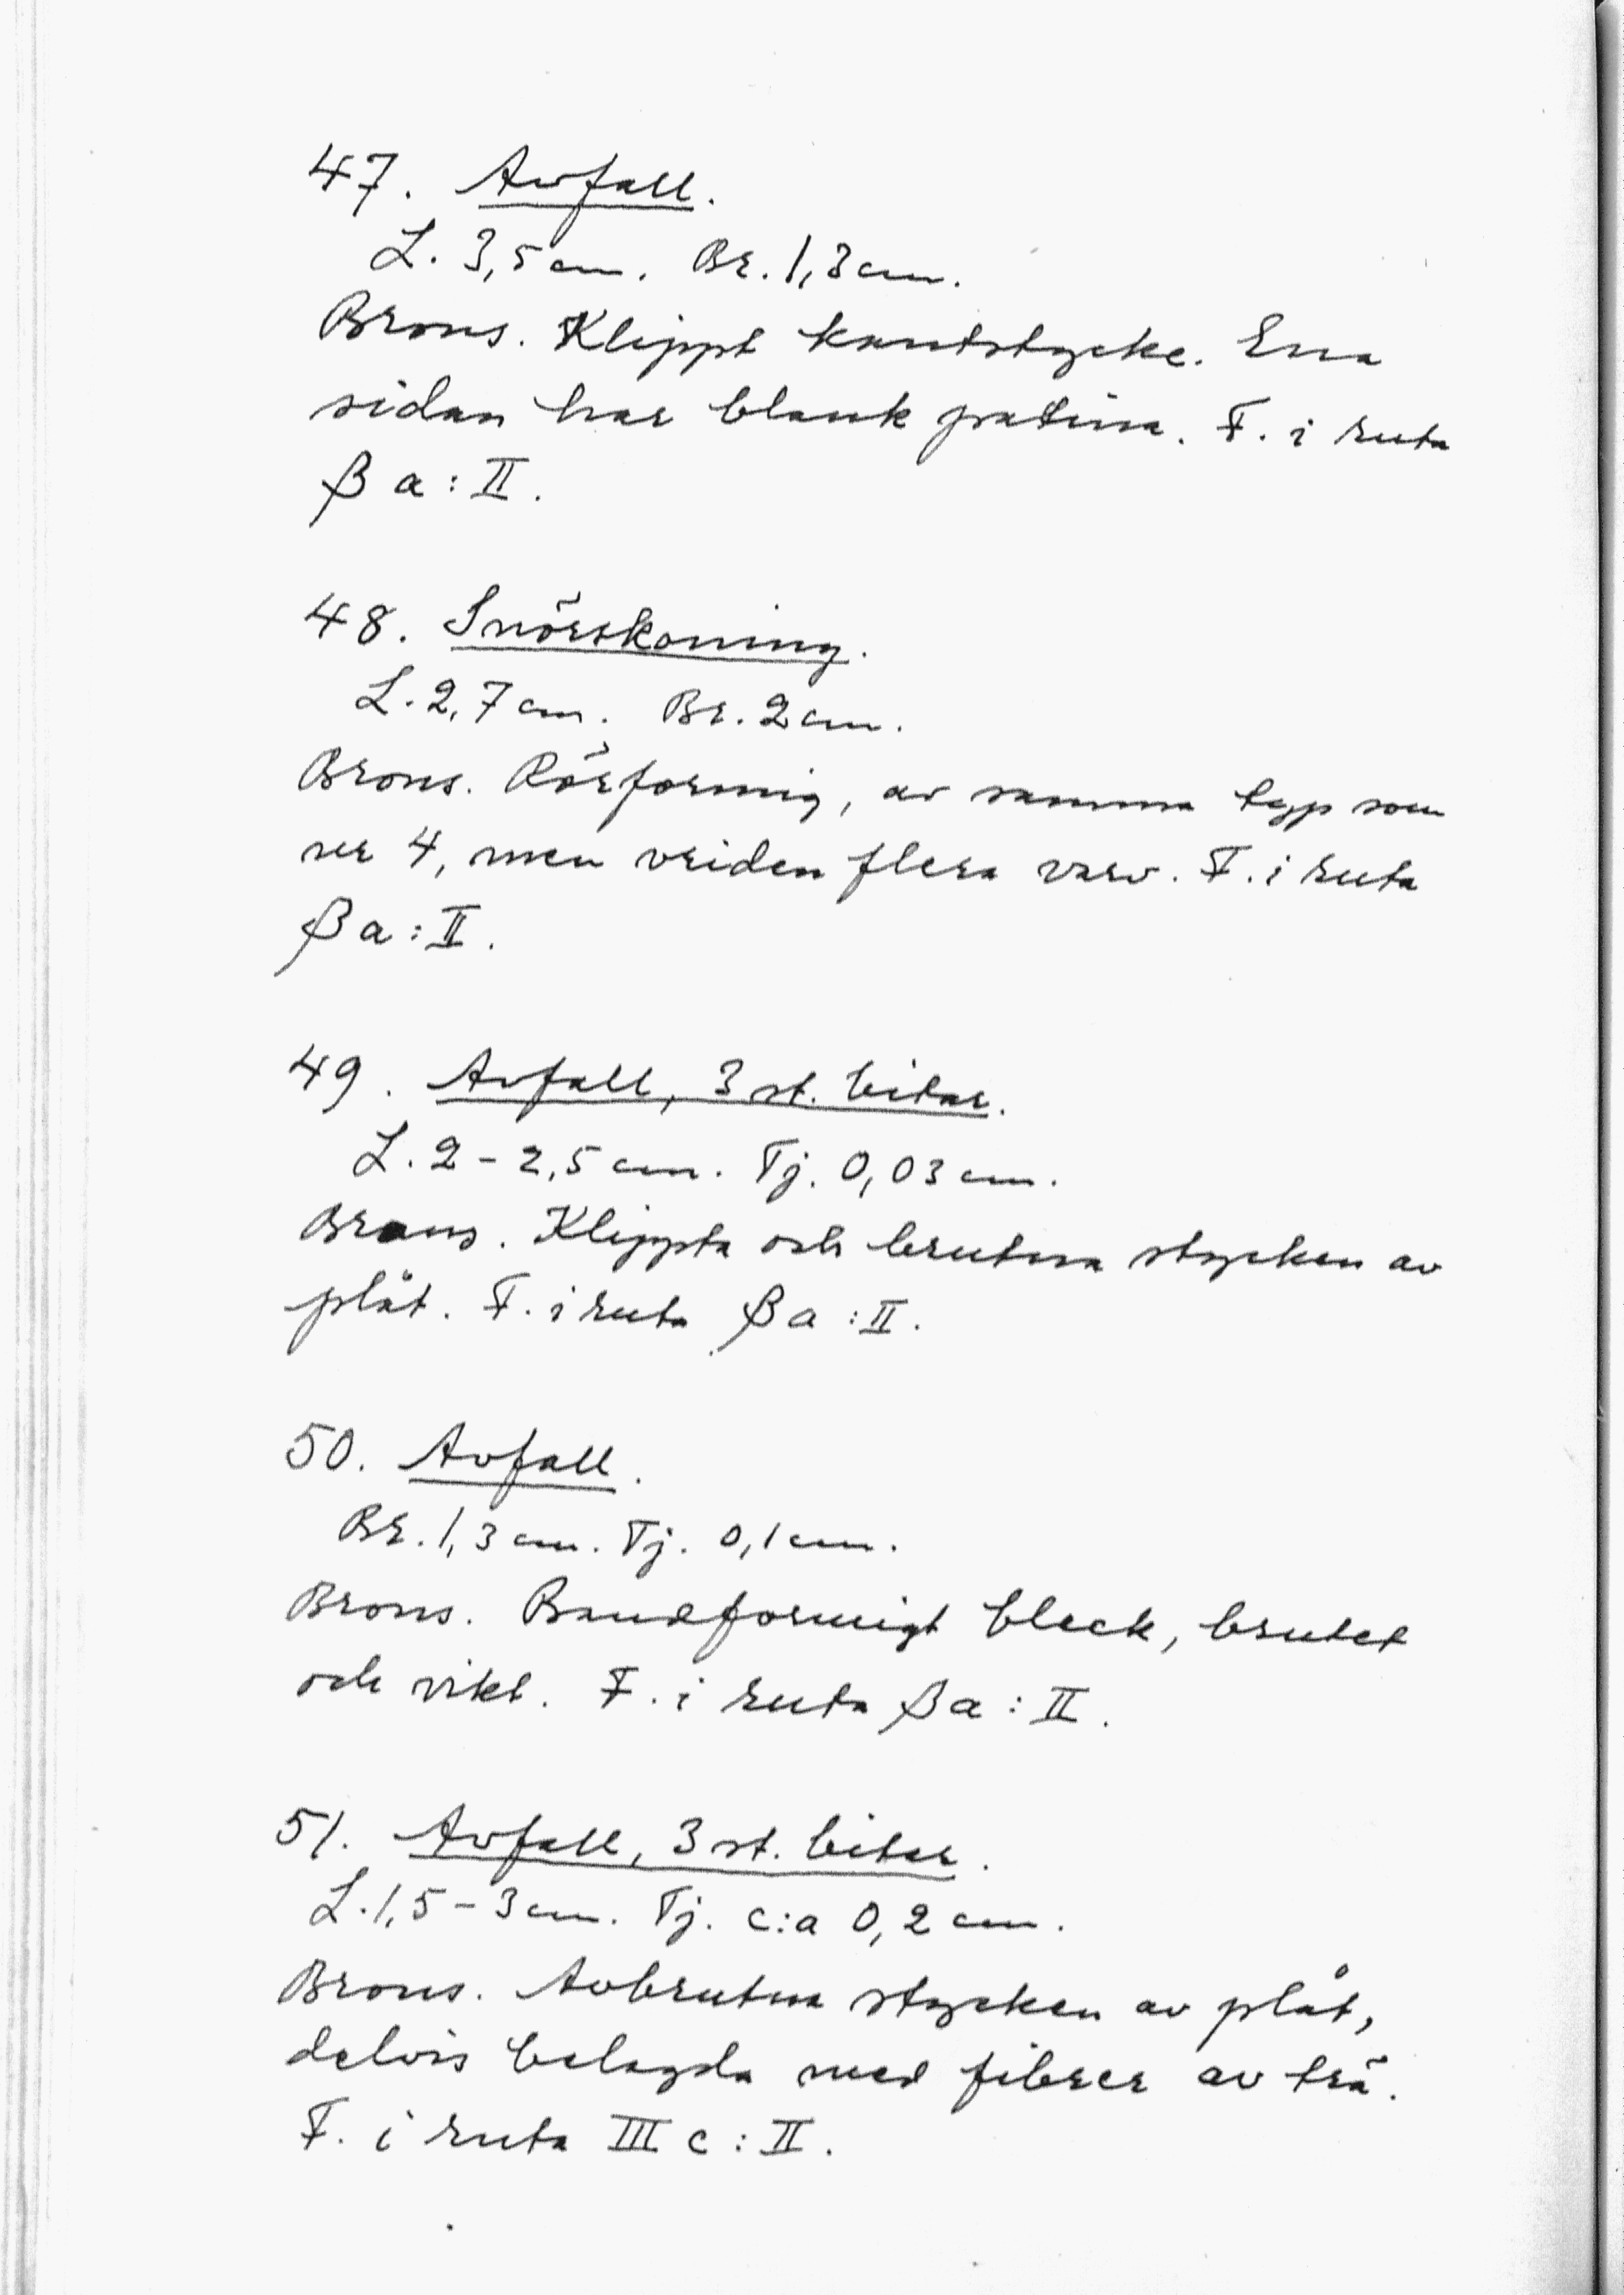 47. Avfall.
L. 3,5 cm. Br. 1,3 cm.
Brons. Klippt kantstycke. Ena
sidan har blank patina. F. i ruta
β a : II.
48. Snörskoning.
L. 2,7 cm. Br. 2 cm.
Brons. Rörformig, av samma typ som
nr 4, men vriden flera varv. F. i ruta
β a : II.
49. Avfall, 3 st. bitar.
L. 2 - 2,5 cm. Tj. 0,03 cm.
Brons. Klippta och brutna stycken av
plåt. F. i ruta β a : II.
50. Avfall.
Br. 1,3 cm. Tj. 0,1 cm.
Brons. Bandformigt bleck, brutet
och vikt. F. i ruta β a : II.
51. Avfall, 3 st. bitar.
L. 1,5 - 3 cm. Tj. c:a 0,2 cm.
Brons. Avbrutna stycken av plåt,
delvis belagda med fibrer av trä.
F. i ruta III c : II.